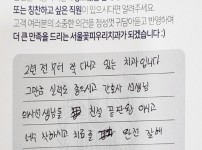 또는 칭찬하고 싶은 직원이 있으시다면 알려주세요.
고객 여러분의 소중한 의견을 정성껏 귀담아듣고 반영하며
더 큰 만족을 드리는 서울꽃피우리치과가 되겠습니다 :)
2년 전 부터 잘 다니고 있는 치과입니다
그만큼 실력도 좋으시고 간호사 선생님
의사선생님들 친절 끝판왕 이시고
너무 착하시고 치료를 완전 잘해